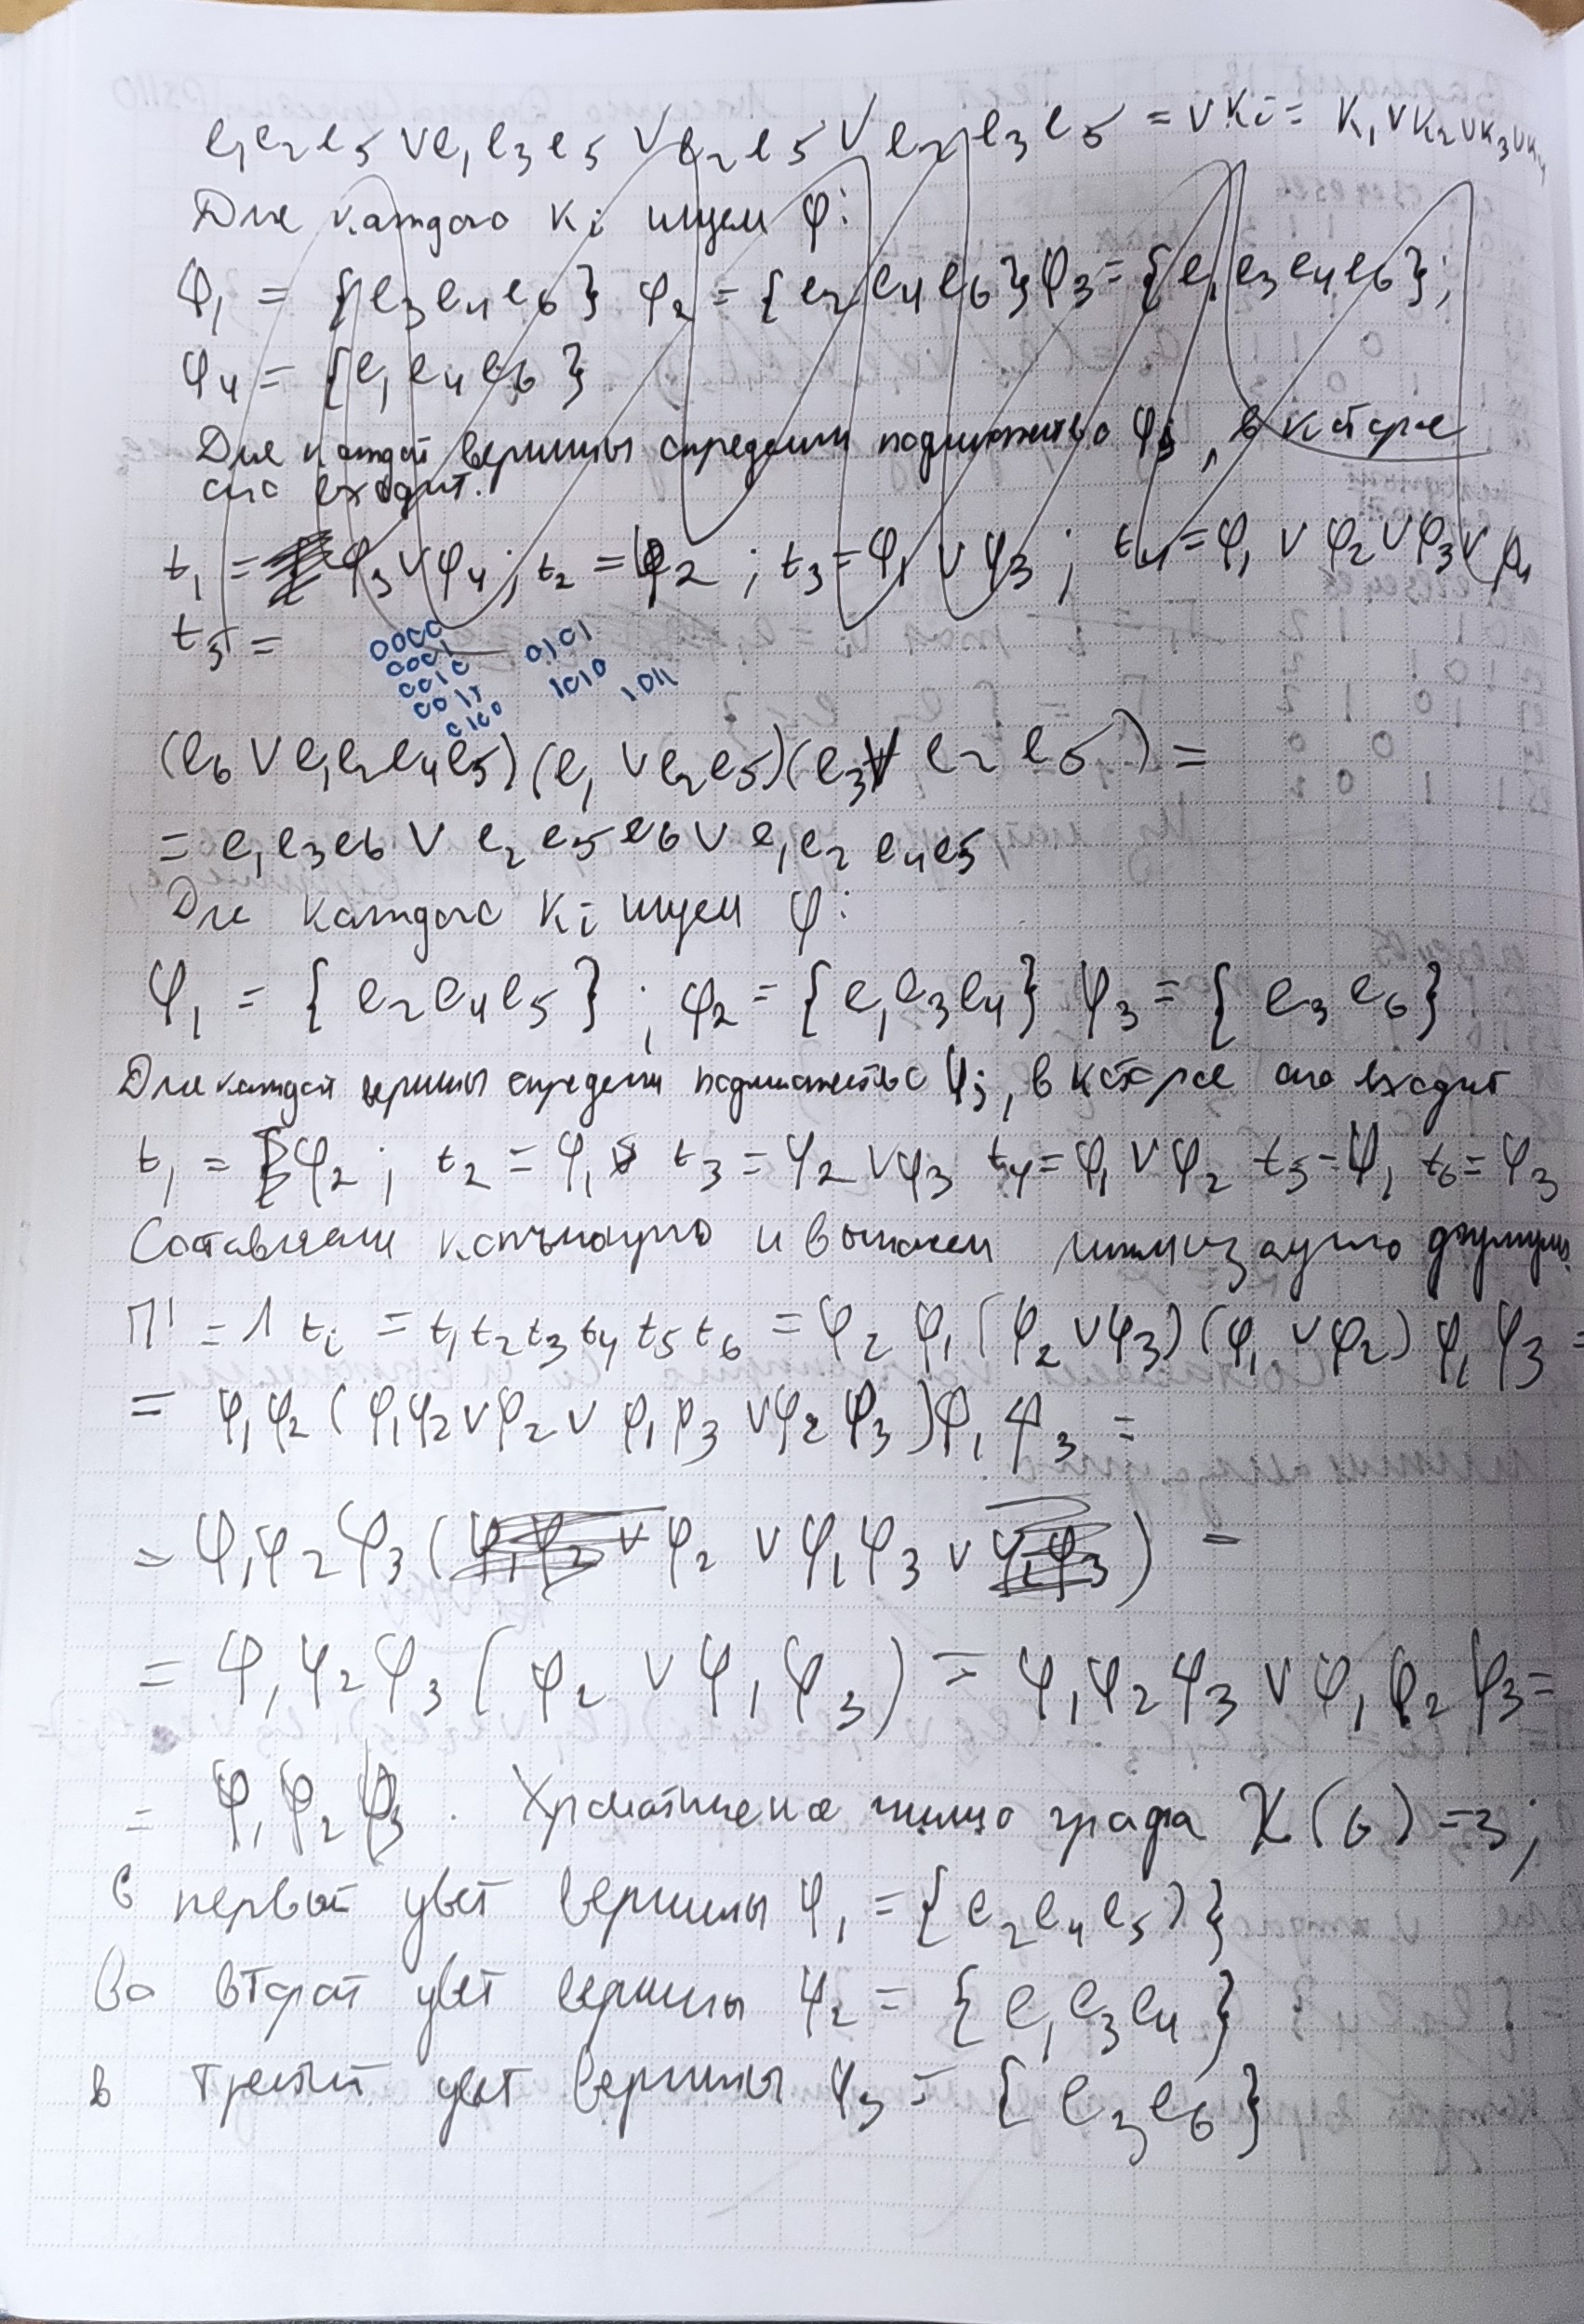 e₁e₂e₅ ∨ e₁e₃e₅ ∨ e₂e₅ ∨ e₂e₃e₅ = ∨Ki = K₁∨K₂∨K₃∨K₄
Для каждого Ki ищем φ:
φ₁ = {e₃e₄e₆} φ₂ = {e₂e₄e₆} φ₃ = {e₁e₃e₄e₆};
φ₄ = {e₁e₄e₆}
Для каждой вершины определим подмножество φj, в которое
она входит.
t₁ = φ₃∨φ₄; t₂ = φ₂; t₃ = φ₁∨φ₃; t₄ = φ₁∨φ₂∨φ₃∨φ₄
t₅ =
0000
0001 0101
0010 1010 1011
0011
0100
(e₆∨e₁e₂e₄e₅)(e₁∨e₂e₅)(e₃∨e₂e₅) =
= e₁e₃e₆ ∨ e₂e₅e₆ ∨ e₁e₂e₄e₅
Для каждого Ki ищем φ:
φ₁ = {e₂e₄e₅}; φ₂ = {e₁e₃e₄} φ₃ = {e₃e₆}
Для каждой вершины определим подмножество φj, в которое она входит
t₁ = φ₂; t₂ = φ₁ t₃ = φ₂∨φ₃ t₄ = φ₁∨φ₂ t₅ = φ₁ t₆ = φ₃
Составляем конъюнкцию и выполняем минимизацию функции
П' = ∧ ti = t₁t₂t₃t₄t₅t₆ = φ₂φ₁(φ₂∨φ₃)(φ₁∨φ₂)φ₁φ₃ =
= φ₁φ₂(φ₁φ₂∨φ₂∨φ₁φ₃∨φ₂φ₃)φ₁φ₃ =
= φ₁φ₂φ₃(∨φ₂∨φ₁φ₃∨) =
= φ₁φ₂φ₃(φ₂∨φ₁φ₃) = φ₁φ₂φ₃∨φ₁φ₂φ₃ =
= φ₁φ₂φ₃. Хроматическое число графа χ(G) = 3;
В первый цвет вершины φ₁ = {e₂e₄e₅)}
Во второй цвет вершины φ₂ = {e₁e₃e₄}
в третий цвет вершины φ₃ = {e₃e₆}